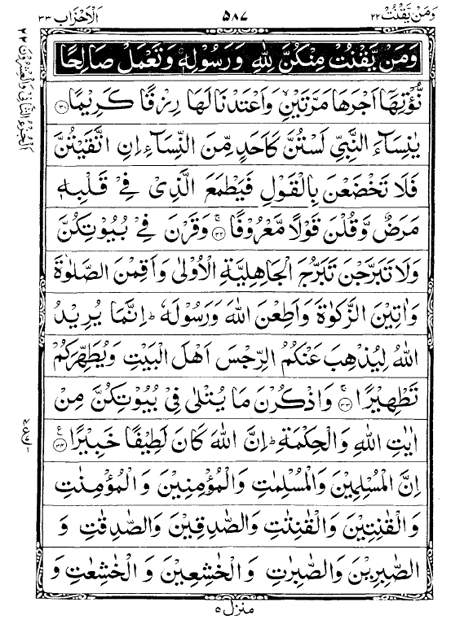 وَمَنْ يَّقْنُتْ ٢٢
٥٨٧
اَلْاَحْزَاب ٣٣
وَمَنْ يَّقْنُتْ مِنْكُنَّ لِلّٰهِ وَرَسُوْلِهٖ وَتَعْمَلْ صَالِحًا
نُّؤْتِهَآ اَجْرَهَا مَرَّتَيْنِ وَاَعْتَدْنَا لَهَا رِزْقًا كَرِيْمًا ۝٣١
يٰنِسَآءَ النَّبِيِّ لَسْتُنَّ كَاَحَدٍ مِّنَ النِّسَآءِ اِنِ اتَّقَيْتُنَّ
فَلَا تَخْضَعْنَ بِالْقَوْلِ فَيَطْمَعَ الَّذِيْ فِيْ قَلْبِهٖ
مَرَضٌ وَّقُلْنَ قَوْلًا مَّعْرُوْفًا ۝٣٢ وَقَرْنَ فِيْ بُيُوْتِكُنَّ
وَلَا تَبَرَّجْنَ تَبَرُّجَ الْجَاهِلِيَّةِ الْاُوْلٰى وَاَقِمْنَ الصَّلٰوةَ
وَاٰتِيْنَ الزَّكٰوةَ وَاَطِعْنَ اللّٰهَ وَرَسُوْلَهٗ ؕ اِنَّمَا يُرِيْدُ
اللّٰهُ لِيُذْهِبَ عَنْكُمُ الرِّجْسَ اَهْلَ الْبَيْتِ وَيُطَهِّرَكُمْ
تَطْهِيْرًا ۝٣٣ وَاذْكُرْنَ مَا يُتْلٰى فِيْ بُيُوْتِكُنَّ مِنْ
اٰيٰتِ اللّٰهِ وَالْحِكْمَةِ ؕ اِنَّ اللّٰهَ كَانَ لَطِيْفًا خَبِيْرًا ۝٣٤
اِنَّ الْمُسْلِمِيْنَ وَالْمُسْلِمٰتِ وَالْمُؤْمِنِيْنَ وَ الْمُؤْمِنٰتِ
وَ الْقٰنِتِيْنَ وَالْقٰنِتٰتِ وَالصّٰدِقِيْنَ وَالصّٰدِقٰتِ وَ
الصّٰبِرِيْنَ وَالصّٰبِرٰتِ وَ الْخٰشِعِيْنَ وَ الْخٰشِعٰتِ وَ
منزل ٥